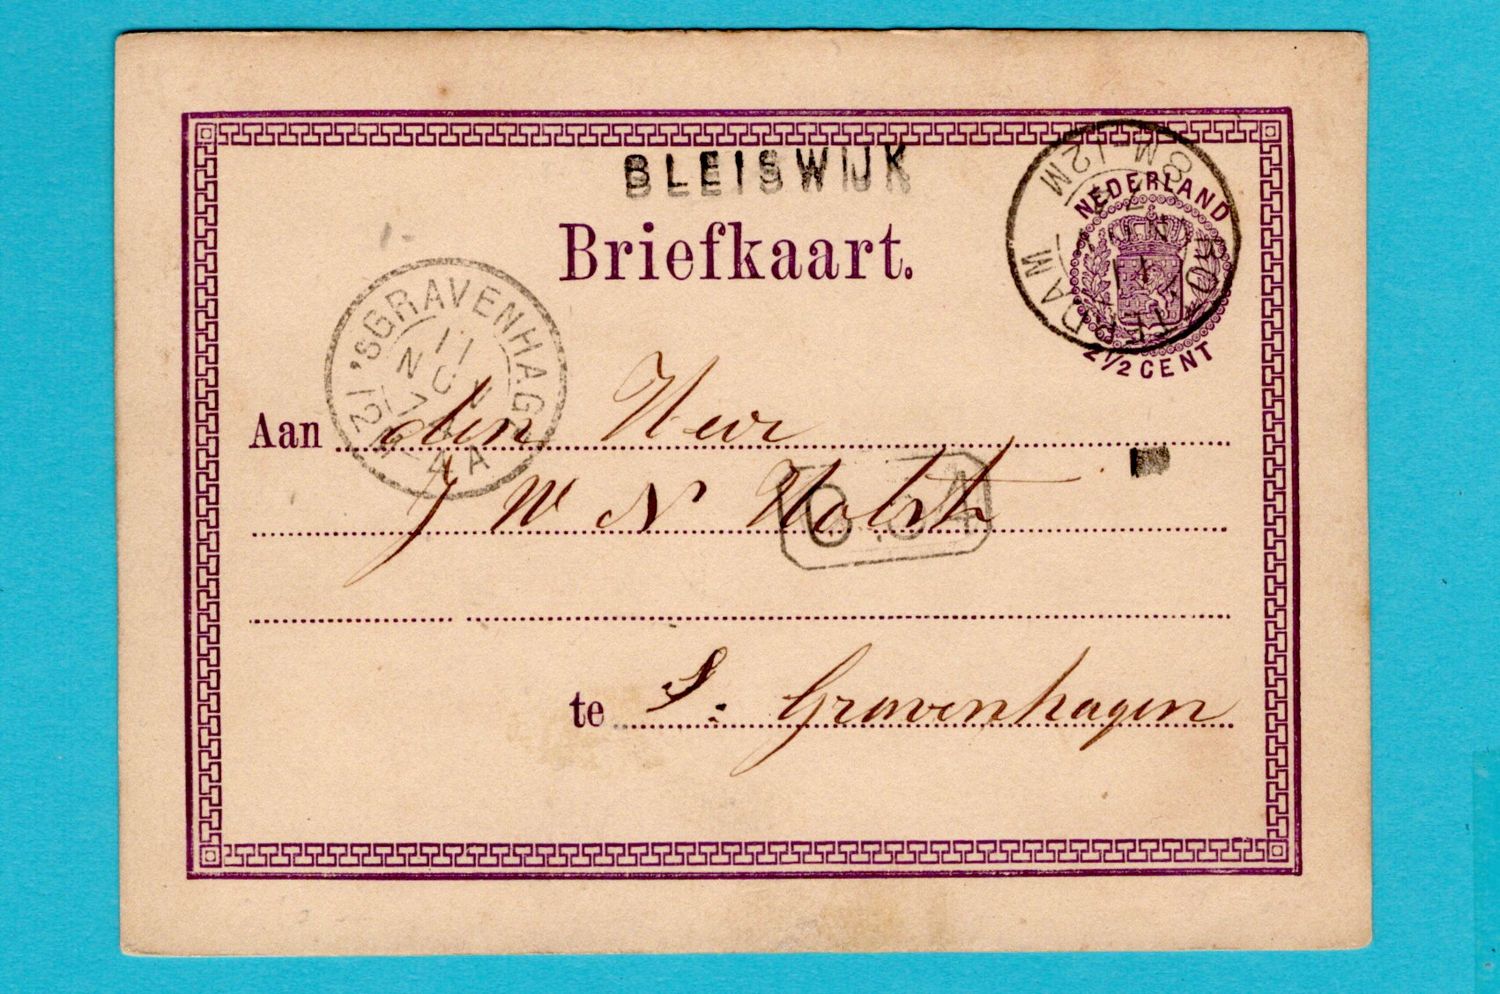 BLEISWIJK
Briefkaart.
NEDERLAND
2½ CENT
ROTTERDAM
8M-12M
11 NOV
'SGRAVENHAGE
11
NOV
4A
Aan den Heer
J W N Holst
te S. Gravenhagen